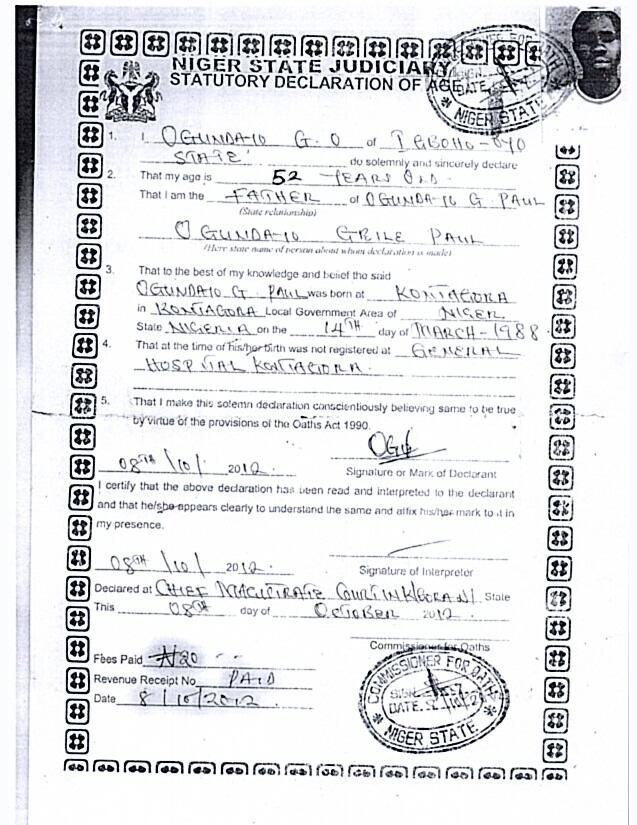 NIGER STATE JUDICIARY
STATUTORY DECLARATION OF AGE
NIGER STATE
1. I OGUNDAIO G. O of IGBOHO-OYO
STATE do solemnly and sincerely declare
2. That my age is 52 YEARS OLD.
That I am the FATHER of OGUNDAIO G. PAUL
(State relationship)
OGUNDAIO GBILE PAUL
(Here state name of person about whom declaration is made)
3. That to the best of my knowledge and belief the said
OGUNDAIO G. PAUL was born at KONTAGORA
in KONTAGORA Local Government Area of NIGER
State NIGERIA on the 14TH day of MARCH-1988
4. That at the time of his/her birth was not registered at GENERAL
HOSPITAL KONTAGORA.
5. That I make this solemn declaration conscientiously believing same to be true
by virtue of the provisions of the Oaths Act 1990.
08TH /10/ 2012.
Signature or Mark of Declarant
I certify that the above declaration has been read and interpreted to the declarant
and that he/she appears clearly to understand the same and affix his/her mark to it in
my presence.
08TH /10/ 2012
Signature of Interpreter
Declared at CHIEF MAGISTRATE COURT State
This 08TH day of OCTOBER 2012
Commissioner for Oaths
Fees Paid ₦20
Revenue Receipt No PAID
Date 8/10/2012
COMMISSIONER FOR OATHS
SIGN
DATE
NIGER STATE